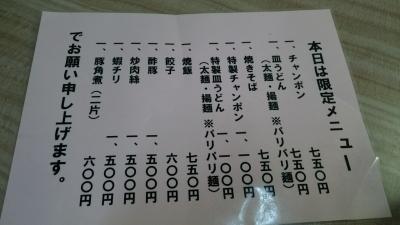 本日は限定メニュー
一、チャンポン 七五〇円
一、皿うどん 七五〇円
（太麺・揚麺 ※バリバリ麺）
一、焼きそば 七五〇円
一、特製チャンポン 一、一〇〇円
一、特製皿うどん 一、一〇〇円
（太麺・揚麺 ※バリバリ麺）
一、焼飯 七五〇円
一、餃子 六〇〇円
一、酢豚 一、五〇〇円
一、炒肉絲 一、五〇〇円
一、蝦チリ 一、五〇〇円
一、豚角煮（二片） 六〇〇円
でお願い申し上げます。